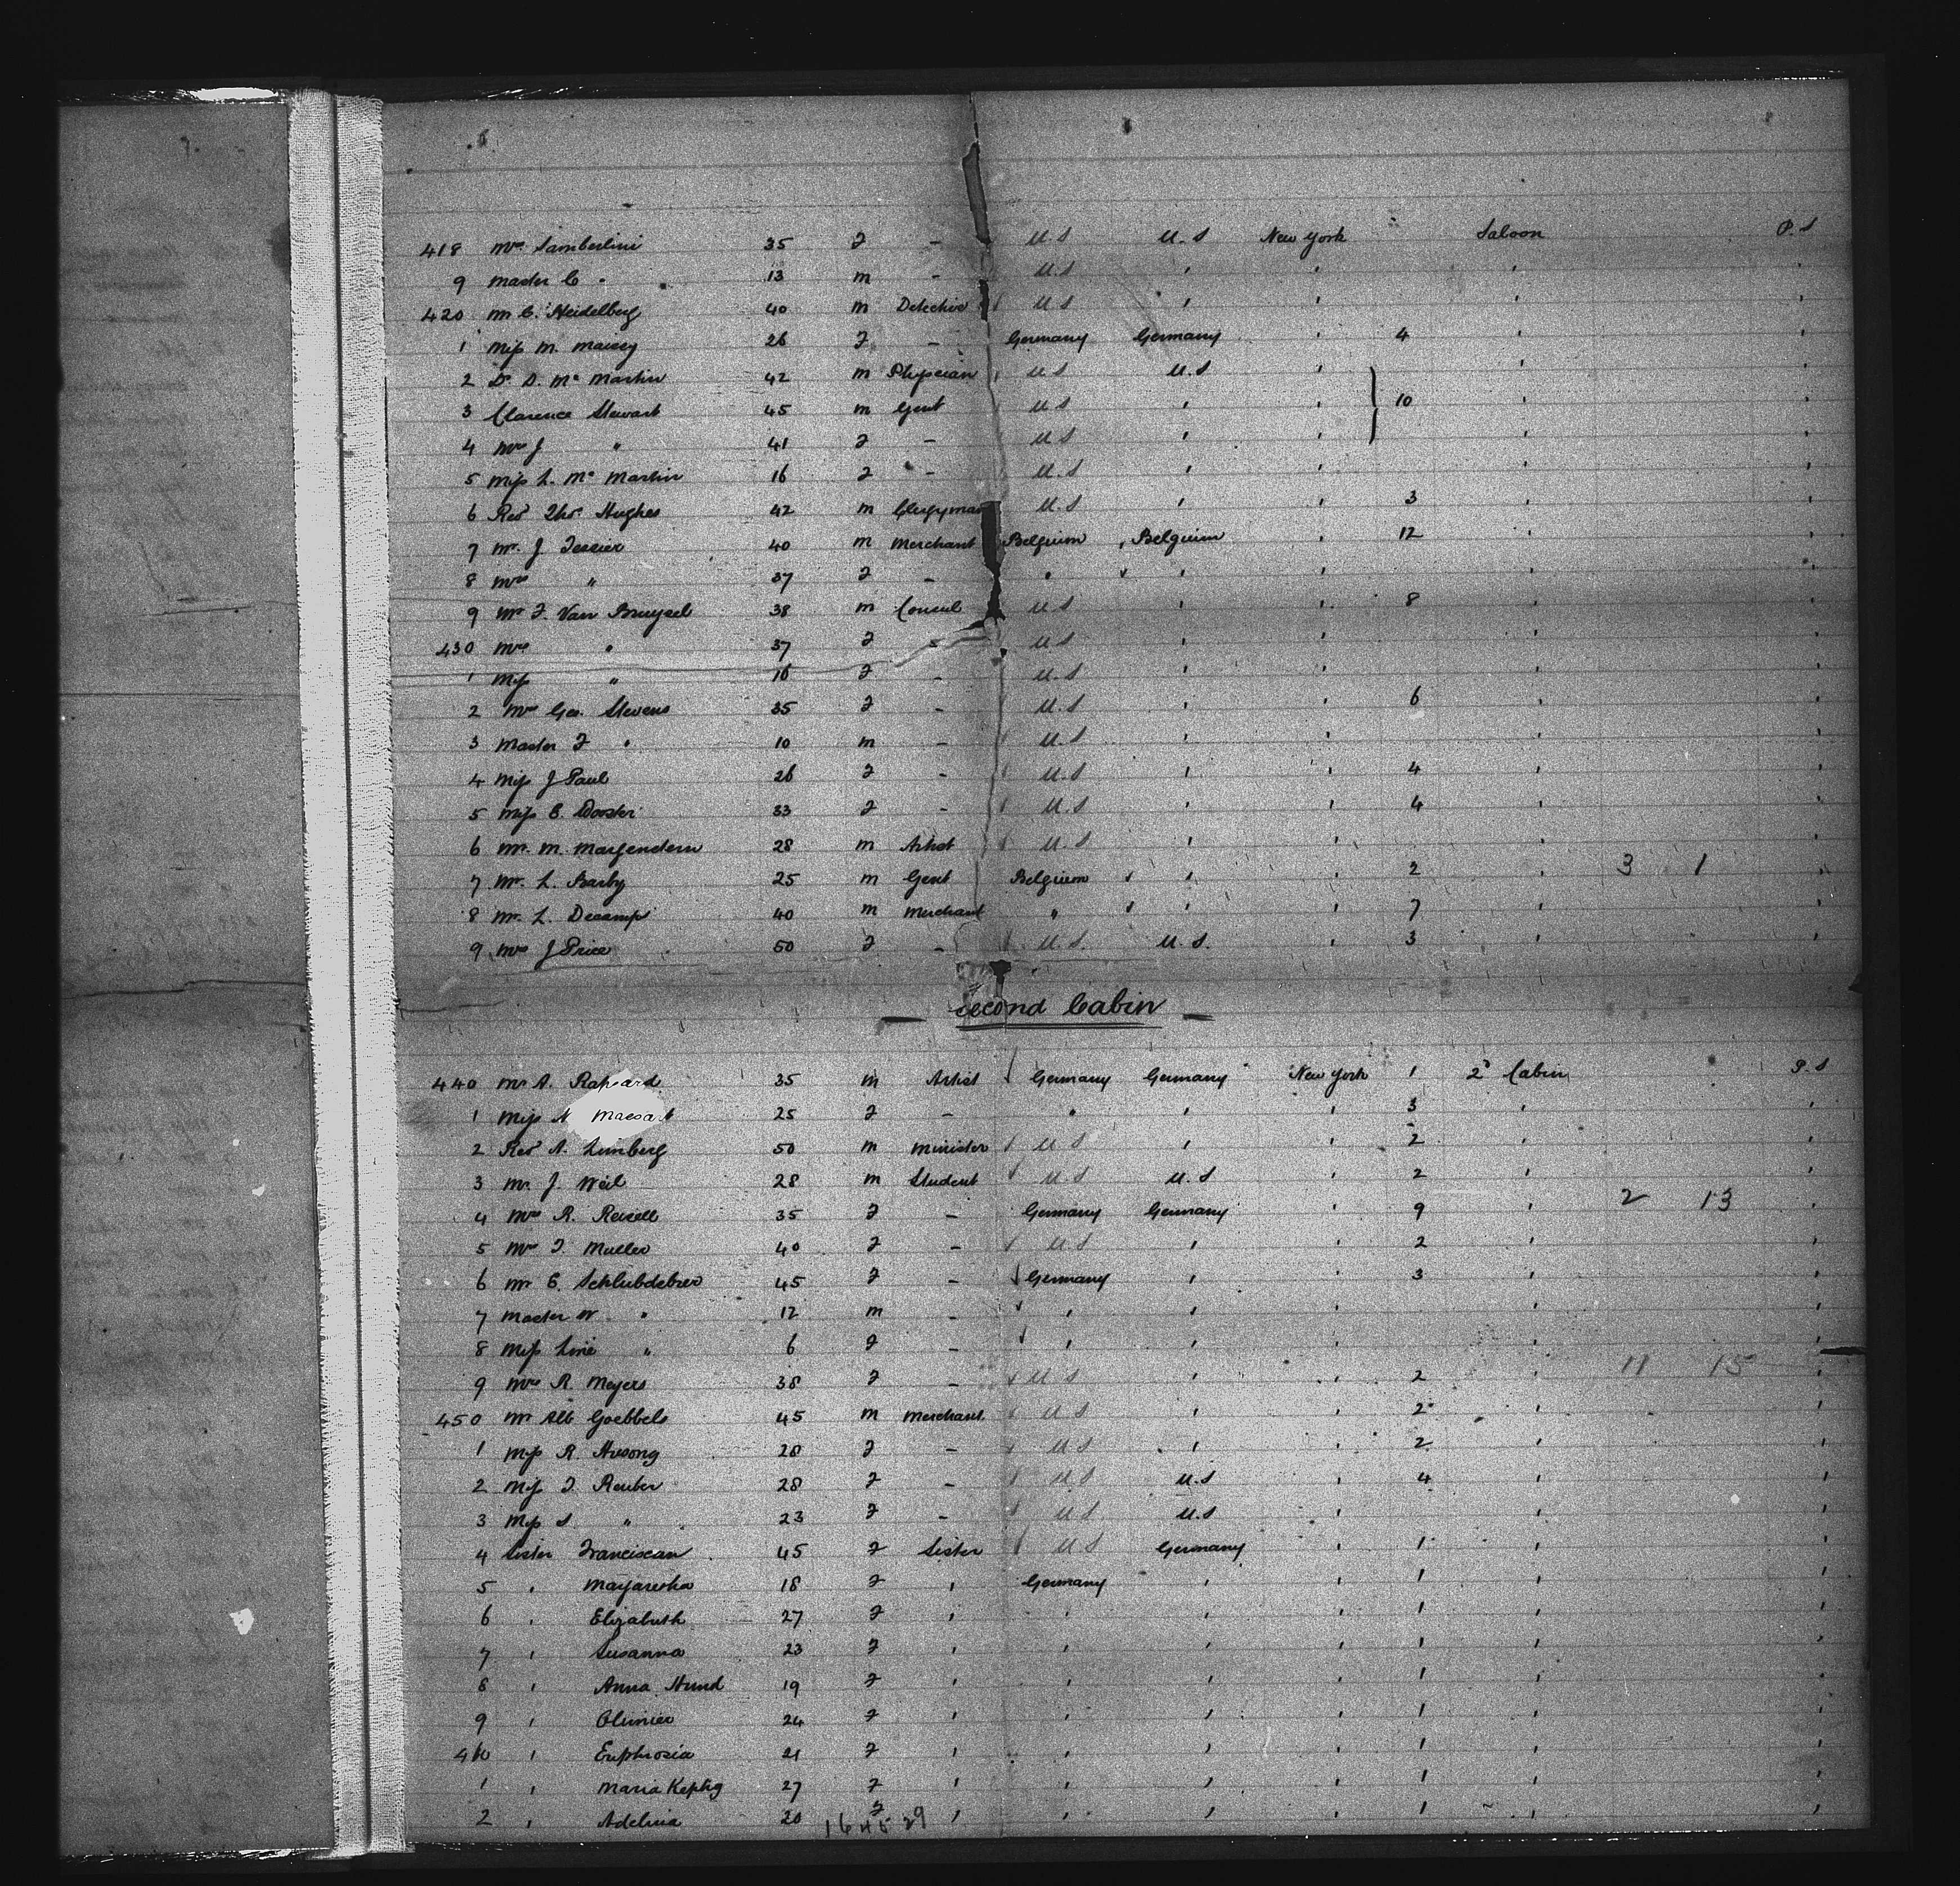 418 Mrs. Lamberlini 35 F - U.S U.S New York Saloon P.S
9 Master C " 13 M - U.S ' ' ' '
420 Mr C. Heidelberg 40 M Detective U.S ' ' ' '
1 Miss M. Massey 26 F - Germany Germany ' 4 ' '
2 Dr D. Mc Martin 42 M Physician U.S U.S ' ' '
3 Clarence Stewart 45 M Gent U.S ' ' 10 ' '
4 Mrs J " 41 F - U.S ' ' ' '
5 Miss L. Mc Martin 16 F - U.S ' ' ' '
6 Revd Thos Hughes 42 M Clergyman U.S ' ' 3 ' '
7 Mr. J Tessier 40 M Merchant Belgium Belgium ' 12 ' '
8 Mrs " 37 F - " ' ' ' '
9 Mr F. Van Bruysel 38 M Consul U.S ' ' 8 ' '
430 Mrs " 37 F - U.S ' ' ' '
1 Miss " 16 F - U.S ' ' ' '
2 Mrs Geo. Stevens 35 F - U.S ' ' 6 ' '
3 Master F " 10 M - U.S ' ' ' '
4 Miss J Paul 26 F - U.S ' ' 4 ' '
5 Miss C. 33 F - U.S ' ' 4 ' '
6 Mr. M. Morgenstern 28 M Artist U.S ' ' ' '
7 Mr. L. Barby 25 M Gent Belgium ' ' 2 ' 3 1 '
8 Mr. L. Decamps 40 M Merchant " ' ' 7 ' '
9 Mrs J Price 50 F - U.S. U.S. ' 3 ' '
— Second Cabin —
440 Mr A. 35 M Artist Germany Germany New York 1 2d Cabin P.S
1 Miss N 25 F - " ' ' 3 ' '
2 Revd A. Limberg 50 M Minister U.S ' ' 2 ' '
3 Mr. J. Weil 28 M Student U.S U.S ' 2 ' '
4 Mrs R. 35 F - Germany Germany ' 9 ' 2 13 '
5 Mrs F. Muller 40 F - U.S ' ' 2 ' '
6 Mr C. 45 F - Germany ' ' 3 ' '
7 Master W " 12 M - ' ' ' ' '
8 Miss Line " 6 F - ' ' ' ' '
9 Mrs R. Meyers 38 F - U.S ' ' 2 ' 11 15 '
450 Mr Alb Goebbels 45 M Merchant U.S ' ' 2 ' '
1 Miss R. Husong 20 F - U.S ' ' 2 ' '
2 Miss F. Reuter 28 F - U.S U.S ' 4 ' '
3 Miss S. " 23 F - U.S U.S ' ' '
4 Sister Franciscan 45 F Sister U.S Germany ' 1 ' '
5 ' Margaretha 18 F ' Germany ' ' 1 ' '
6 ' Elizabeth 27 F ' ' ' ' 1 ' '
7 ' Susanna 23 F ' ' ' ' 1 ' '
8 ' Anna Hund 19 F ' ' ' ' 1 ' '
9 ' 24 F ' ' ' ' 1 ' '
460 ' Euphrosia 21 F ' ' ' ' 1 ' '
1 ' Maria 27 F ' ' ' ' 1 ' '
2 ' Adelina 20 F ' ' ' ' 1 ' '